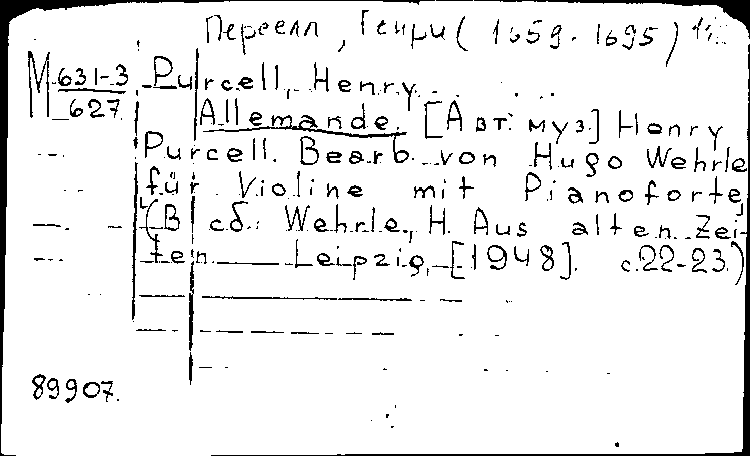 Перселл, Генри (1659-1695)
М 631-3
627
Purcell, Henry.
Allemande. [Авт. муз.] Henry
Purcell. Bearb. von Hugo Wehrle
für Violine mit Pianoforte,
(В сб.: Wehrle, H. Aus alten Zei-
ten. Leipzig, [1948]. с.22-23.)
89907.